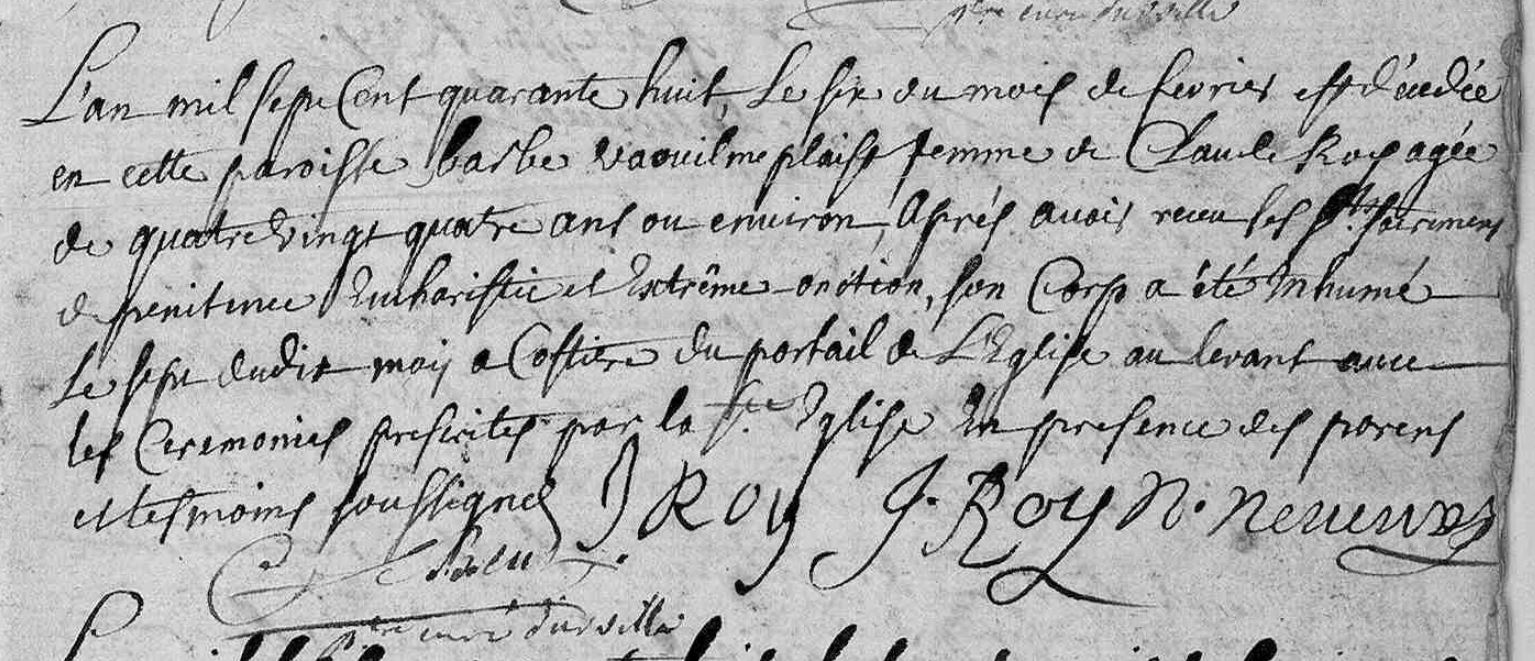 ptre curé durville
L'an mil sept Cent quarante huit, Le six du mois de fevrier est décedée
en cette paroisse barbe vaouilmeplaist femme de Claude Roy agée
de quatre vingt quatre ans ou environ, Aprés avoir receu les Sts. sacremens
de penitence Eucharistie et Extrême-onction, son Corp a été Inhumé
Le sept dudit mois a Costiere du portail de L'Eglise au levant avec
les Ceremonies prescites par la Ste. Eglise En presence des parens
et tesmoins soussignes J Roy J. Roy N.
ptre curé durville